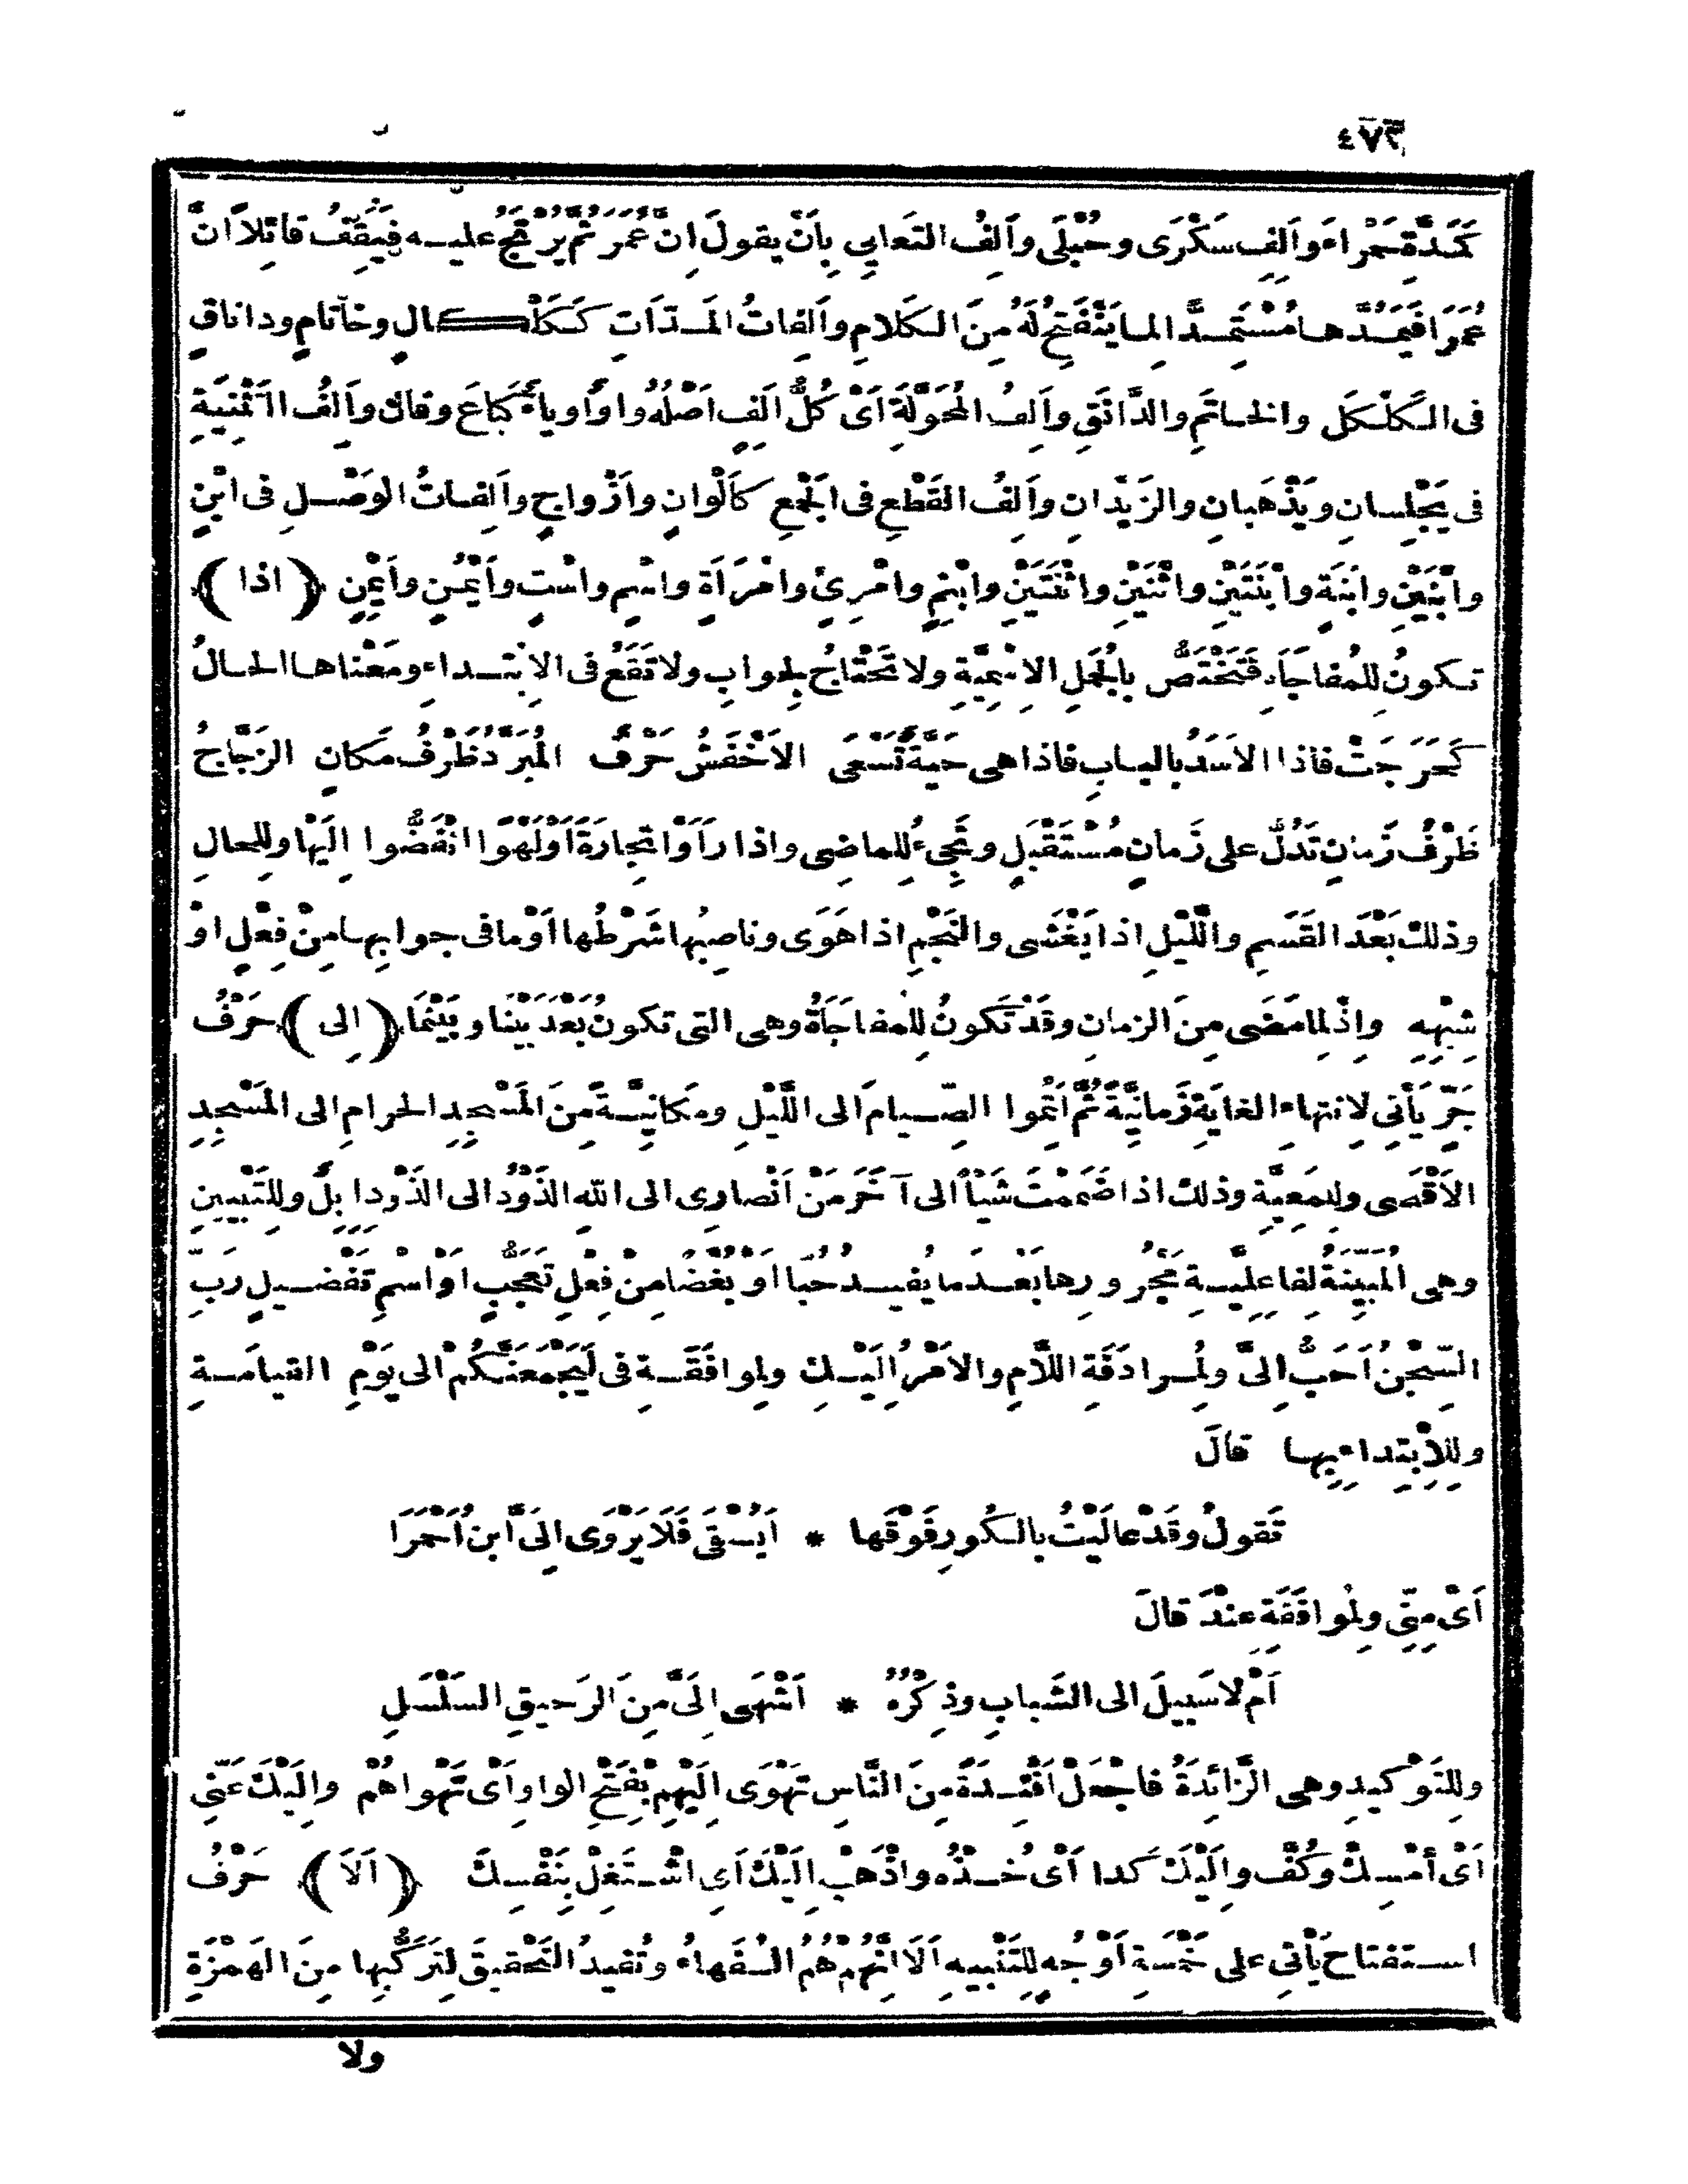 ٤٧٣
كَمَدَّةِ حَمْراءَ وأَلِفِ سَكْرَى وحُبْلَى وأَلِفُ التَعابِي بِأَنْ يقولَ اِنَّ عُمَرَ ثُمَّ يُرْتَجُ عليه فيَقِفُ قائِلاً اِنَّ
عُمَرَا فَيَمُدُّها مُسْتَمِدًّا لِما يَنْفَتِحُ لَهُ مِنَ الكَلامِ وأَلِفاتُ المَدَّاتِ كَكَلْكالٍ وخاتامٍ وداناقٍ
فى الكَلْكَلِ والخاتَمِ والدَّانَقِ وأَلِفُ المُحَوَّلَةِ اَىْ كُلُّ اَلِفٍ اَصْلُهُ واوٌ اَوياءٌ كَباعَ وقالَ وأَلِفُ التَثْنِيَةِ
فى يَجْلِسانِ ويَذْهَبانِ والزَيْدانِ وأَلِفُ القَطْعِ فى الجَمْعِ كأَلْوانٍ وأَزْواجٍ وأَلِفاتُ الوَصْلِ فى ابْنٍ
وابْنَيْنِ وابْنَةٍ وابْنَتَيْنِ واثْنَيْنِ واثْنَتَيْنِ وابْنِمٍ وامْرِئٍ وامْرَأَةٍ واسْمٍ واسْتٍ وأَيْمُنٍ وأَيْمِنٍ ﴿ اذا ﴾
تكونُ للمُفاجَأَةِ فَتَخْتَصُّ بالجُمَلِ الاِسْمِيَّةِ ولا تَحْتاجُ لِجوابٍ ولا تَقَعُ فى الاِبْتِداءِ ومَعْناها الحالُ
كَخَرَجَتْ فاذا الاَسَدُ بالبابِ فاذا هى حَيَّةٌ تَسْعَى الاَخْفَشُ حَرْفٌ المُبَرّدُ ظَرْفُ مَكانٍ الزَجَّاجُ
ظَرْفُ زَمانٍ تَدُلُّ على زَمانٍ مُسْتَقْبَلٍ وتَجِىءُ لِلماضِى واذا رَاَوْا تِجارَةً اَوْلَهْوًا انْفَضُّوا اِلَيْها ولِلحالِ
وذلك بَعْدَ القَسَمِ واللَّيْلِ اذا يَغْشَى والنَجْمِ اذا هَوَى وناصِبُها شَرْطُها اَوْ ما فى جوابِها مِنْ فِعْلٍ اوْ
شِبْهِهِ واِذْ لِما مَضَى مِنَ الزمانِ وقَدْ تَكونُ لِلمفاجَأَةُ وهى التى تكونُ بَعْدَ بَيْنا وبَيْنَمَا ﴿ اِلى ﴾ حَرْفُ
جَرٍّ يَأتى لِانتهاءِ الغايَةِ زَمانِيَّةً ثُمَّ اَتِمُّوا الصِّيامَ الى اللَّيْلِ ومكانِيَّةً مِنَ المَسْجِدِ الحرامِ الى المَسْجِدِ
الاَقْصى ولِلمَعِيَّةِ وذلك اذا ضَمَمْتَ شَيْأً الى آخَرَ مَنْ اَنْصارِى الى اللهِ الذَوْدُ الى الذَوْدِ اِبِلٌ ولِلتَبْيينِ
وهى المُبَيِّنَةُ لِفاعِلِيَّةِ مَجْرورِها بَعْدَ ما يُفيدُ حُبًّا اوْ بُغْضًا مِنْ فِعْلِ تَعَجُّبٍ اوْ اسْمِ تَفْضيلٍ رَبِّ
السِّجْنُ اَحَبُّ اِلىَّ ولِمُرادَفَةِ اللَّامِ والاَمْرُ اِلَيْكِ ولِموافَقَةِ فى لَيَجْمَعَنَّكُمْ الى يَوْمِ القِيامَةِ
ولِلاِبْتِداءِ بِها قالَ
تَقولُ وقَدْ عالَيْتُ بالكُورِ فَوْقَها * اَيُسْقَى فَلَا يَرْوَى اِلَىَّ ابنُ اَحْمَرَا
اَىْ مِنِّى ولِمُوافَقَةِ عِنْدَ قالَ
اَمْ لا سَبيلَ الى الشَبابِ وذِكْرُهُ * اَشْهَى اِلَىَّ مِنَ الرَحيقِ السَلْسَلِ
ولِلتَوْكيدِ وهى الزَّائِدَةُ فاجْعَلْ اَفْئِدَةً مِنَ النَّاسِ تَهْوَى اِلَيْهِمْ بِفَتْحِ الواوِ اَىْ تَهْواهُمْ واِلَيْكَ عَنِّى
اَىْ أمْسِكْ وكُفَّ واِلَيْكَ كَذا اَىْ خُذْهُ واذْهَبْ اِلَيْكَ اَىِ اشْتَغِلْ بِنَفْسِكَ ﴿ اَلاَ ﴾ حَرْفُ
استفتاحٍ يَأْتى على خَمْسَةِ اَوْجُهٍ لِلتَنْبيهِ اَلَا اِنَّهُمْ هُمُ السُفَهاءُ وتُفيدُ التَحْقيقَ لِتَرَكُّبِها مِنَ الهَمْزَةِ
ولا